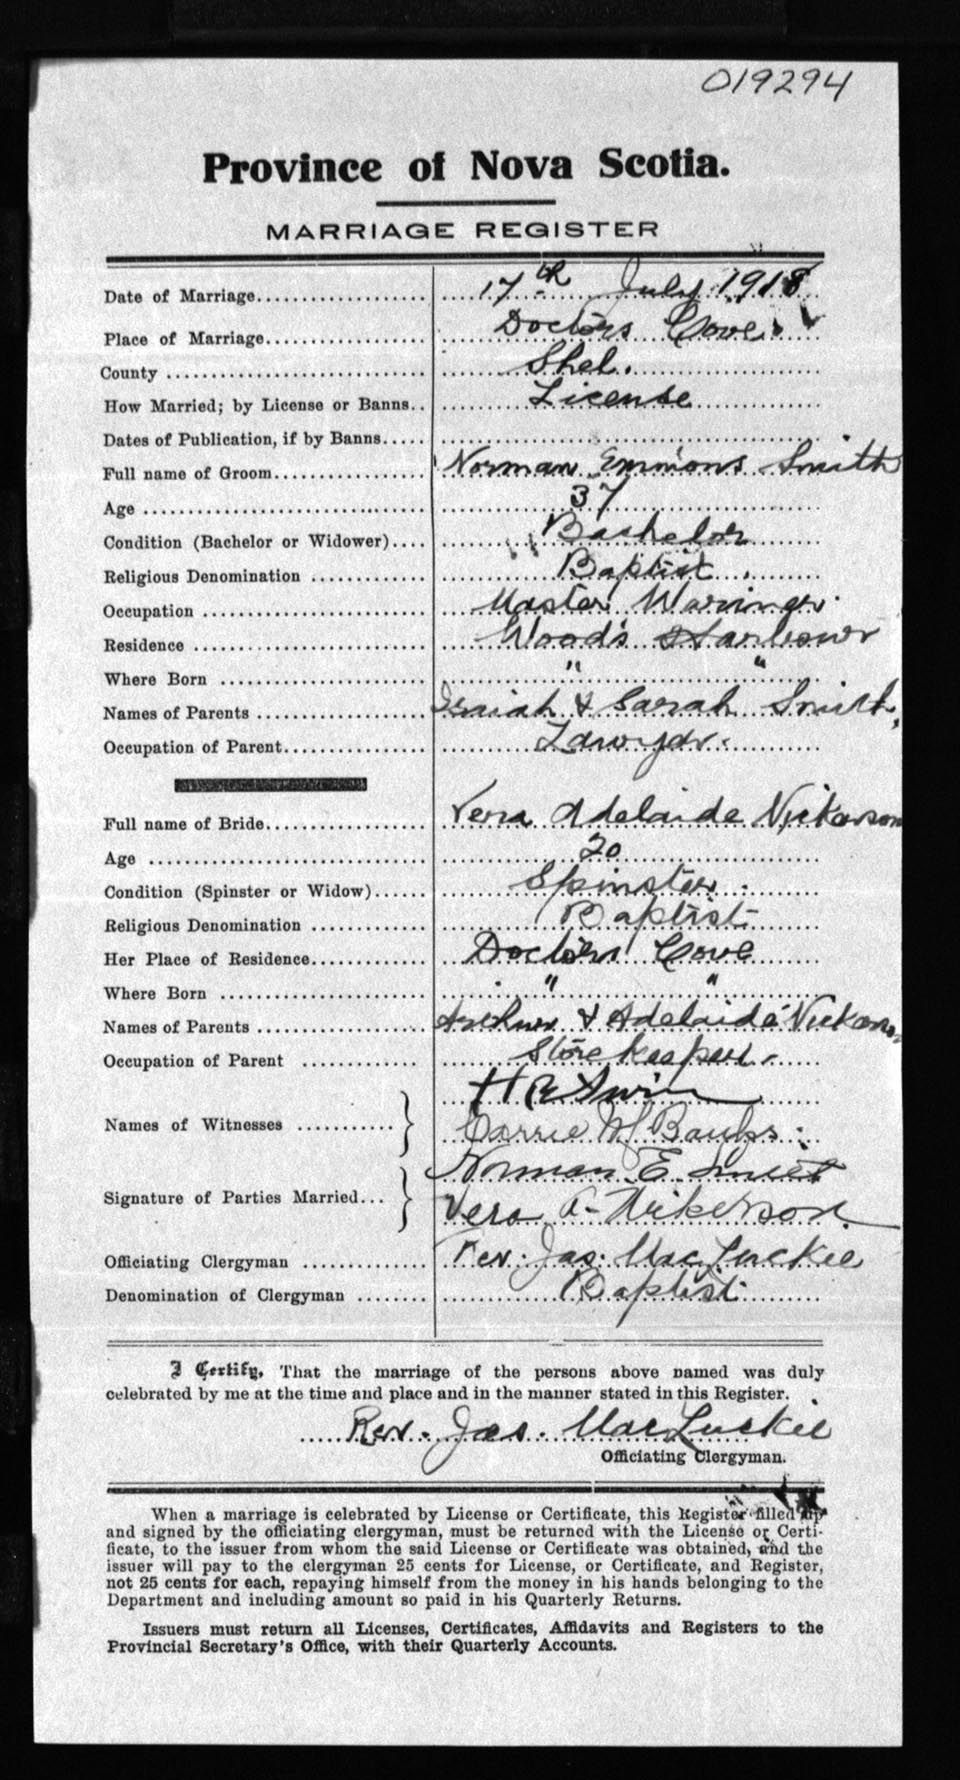 019294
Province of Nova Scotia.
MARRIAGE REGISTER
Date of Marriage 17th July 1918
Place of Marriage Doctors Cove.
County Shel.
How Married; by License or Banns License
Dates of Publication, if by Banns
Full name of Groom Norman Emmons Smith
Age 37
Condition (Bachelor or Widower) Bachelor
Religious Denomination Baptist
Occupation Master Marriner
Residence Wood's Harbour
Where Born " "
Names of Parents Isaiah & Sarah Smith,
Occupation of Parent Lawyer.
Full name of Bride Vera Adelaide Nickerson
Age 20
Condition (Spinster or Widow) Spinster
Religious Denomination Baptist
Her Place of Residence Doctors Cove
Where Born " "
Names of Parents Arthur & Adelaide Nickerson
Occupation of Parent Store keeper
Names of Witnesses H
Carrie M Banks
Signature of Parties Married Norman E Smith
Vera A. Nickerson
Officiating Clergyman Rev. Jas. MacLuckie
Denomination of Clergyman Baptist
I Certify, That the marriage of the persons above named was duly
celebrated by me at the time and place and in the manner stated in this Register.
Rev. Jas. MacLuckie
Officiating Clergyman.
When a marriage is celebrated by License or Certificate, this Register filled up
and signed by the officiating clergyman, must be returned with the License or Certi-
ficate, to the issuer from whom the said License or Certificate was obtained, and the
issuer will pay to the clergyman 25 cents for License, or Certificate, and Register,
not 25 cents for each, repaying himself from the money in his hands belonging to the
Department and including amount so paid in his Quarterly Returns.
Issuers must return all Licenses, Certificates, Affidavits and Registers to the
Provincial Secretary's Office, with their Quarterly Accounts.